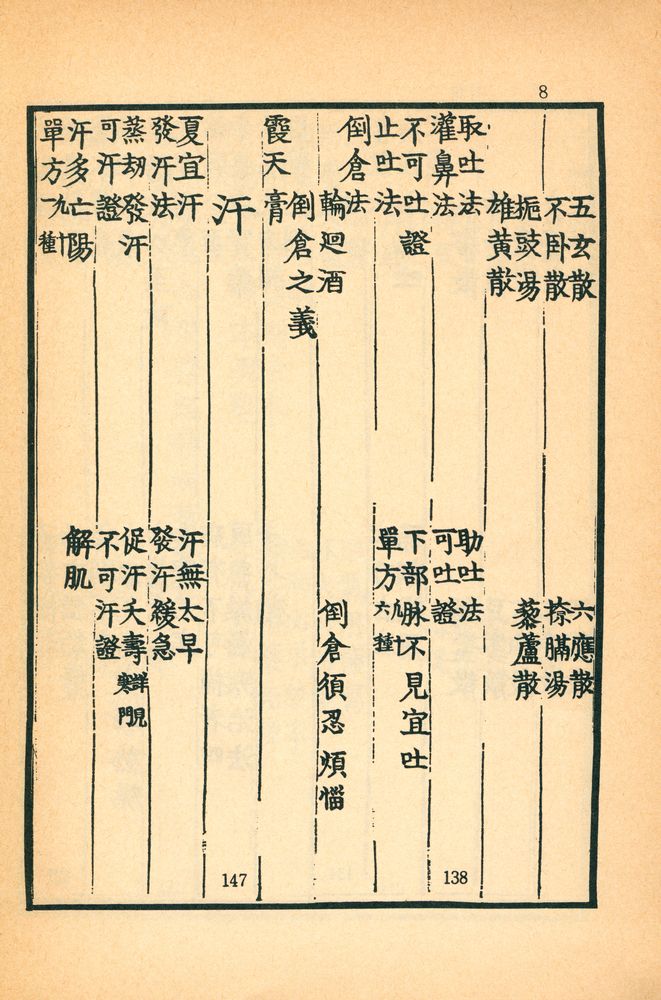 8
五玄散　六應散
不卧散　撩膈湯
梔豉湯　藜蘆散
雄黄散
取吐法　助吐法
灌鼻法　可吐證
138
不可吐證　下部脉不見宜吐
止吐法　單方凡十六種
倒倉法
輪迴酒　倒倉須忍煩惱
倒倉之義
霞天膏
汗
147
夏宜汗　汗無太早
發汗法　發汗緩急
蒸劫發汗　促汗夭壽詳見寒門
可汗證　不可汗證
汗多亡陽　解肌
單方凡十一種